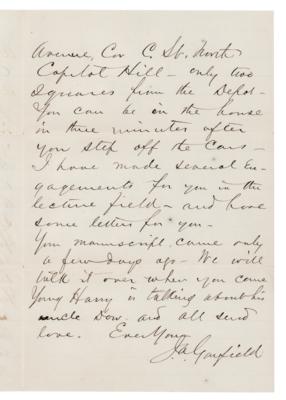 Avenue, Cor C. St. North
Capitol Hill - only two
Squares from the Depot -
You can be in the house
in three minutes after
you step off the Cars -
I have made several En-
gagements for you in the
lecture field - and have
some letters for you -
Your manuscript came only
a few days ago - We will
talk it over when you come
Young Harry is talking about his
uncle Dow. and all send
love. Ever Yours
J.A. Garfield